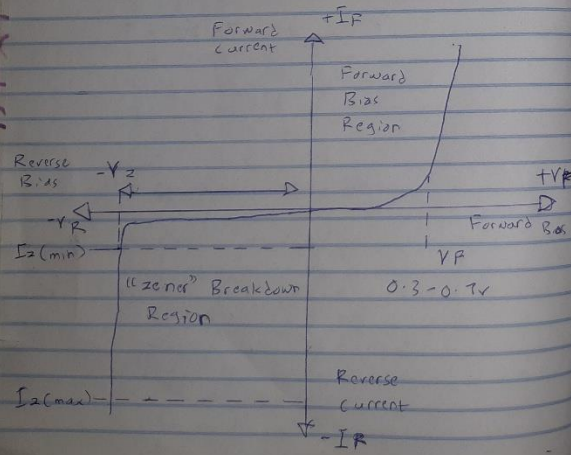 +IF
Forward
Current
Forward
Bias
Region
Reverse
Bias
-Vz
+VF
-VR
Forward Bias
Iz(min)
VF
"zener" Breakdown
Region
0.3-0.7v
Iz(max)
Reverse
Current
-IR